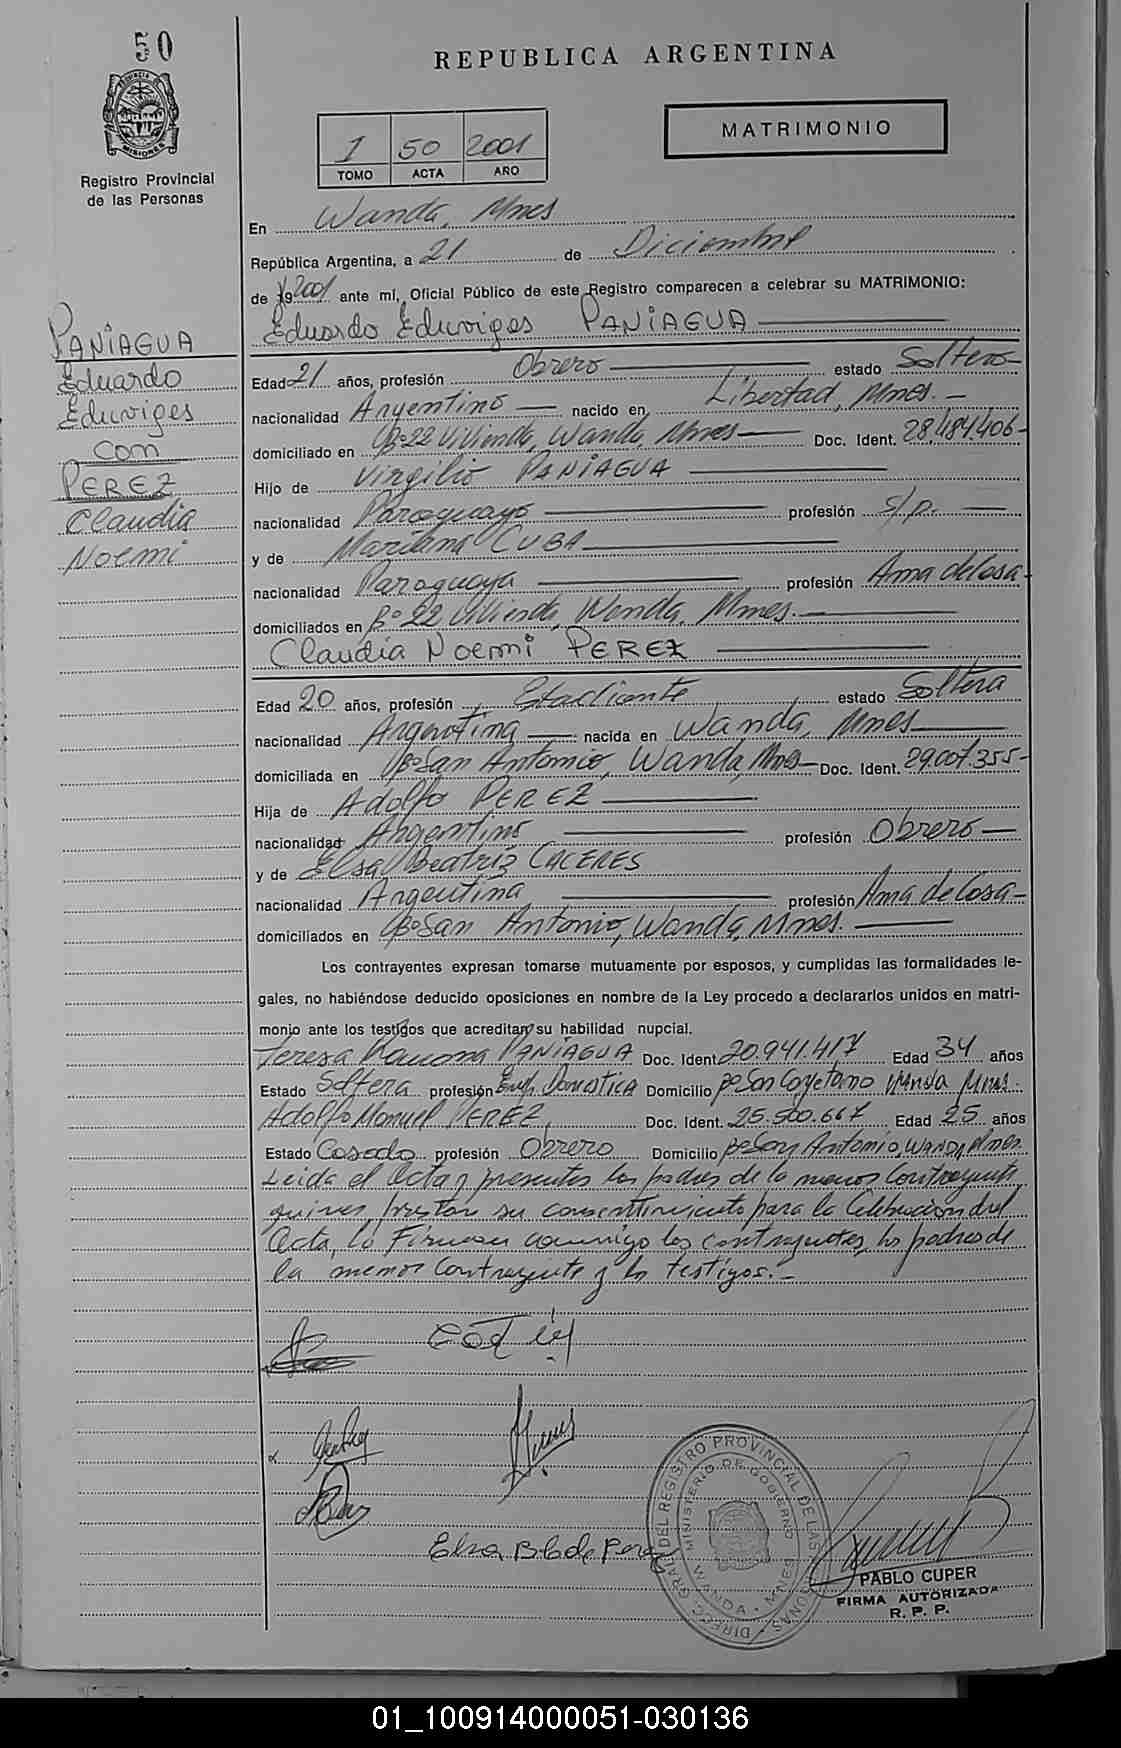 50
REPUBLICA ARGENTINA
MISIONES
Registro Provincial
de las Personas
1 50 2001
TOMO ACTA AÑO
MATRIMONIO
En Wanda, Mnes
República Argentina, a 21 de Diciembre
de 2001 ante mí, Oficial Público de este Registro comparecen a celebrar su MATRIMONIO:
PANIAGUA
Eduardo
Eduviges
con
PEREZ
Claudia
Noemi
Eduardo Eduviges PANIAGUA
Edad 21 años, profesión Obrero estado Soltero
nacionalidad Argentino nacido en Libertad, Mnes.
domiciliado en Bº 22 Vivienda, Wanda, Mnes Doc. Ident. 28.484.406
Hijo de Virgilio PANIAGUA
nacionalidad Paraguayo profesión s/p.
y de Mariana CUBA
nacionalidad Paraguaya profesión Ama de Casa
domiciliados en Bº 22 Vivienda, Wanda, Mnes.
Claudia Noemi PEREZ
Edad 20 años, profesión Estudiante estado Soltera
nacionalidad Argentina nacida en Wanda, Mnes
domiciliada en Bº San Antonio, Wanda, Mnes Doc. Ident. 29.007.355
Hija de Adolfo PEREZ
nacionalidad Argentino profesión Obrero
y de Elsa Beatriz CACERES
nacionalidad Argentina profesión Ama de Casa
domiciliados en Bº San Antonio, Wanda, Mnes.
Los contrayentes expresan tomarse mutuamente por esposos, y cumplidas las formalidades le-
gales, no habiéndose deducido oposiciones en nombre de la Ley procedo a declararlos unidos en matri-
monio ante los testigos que acreditan su habilidad nupcial.
Teresa Ramona PANIAGUA Doc. Ident 20.941.417 Edad 34 años
Estado Soltera profesión Emp. Domestica Domicilio Bº San Cayetano Wanda Mnes.
Adolfo Manuel PEREZ, Doc. Ident. 25.500.667 Edad 25 años
Estado Casado profesión Obrero Domicilio Bº San Antonio, Wanda, Mnes.
Leida el Acta y presentes los padres de la menor Contrayente
quienes prestan su consentimiento para la Celebracion del
Acta, lo Firman conmigo los contrayentes, los padres de
la menor Contrayente y los testigos.-
Elsa B C de Perez
DIREC. GRAL. DEL REGISTRO PROVINCIAL DE LAS PERSONAS
MINISTERIO DE GOBIERNO
WANDA - MNES
PABLO CUPER
FIRMA AUTORIZADA
R. P. P.
01_100914000051-030136